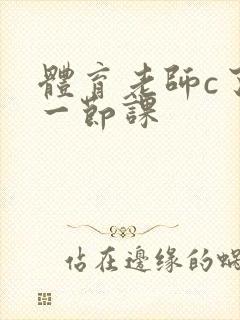 體育老師c了
一節課
佔在邊缘的蝸